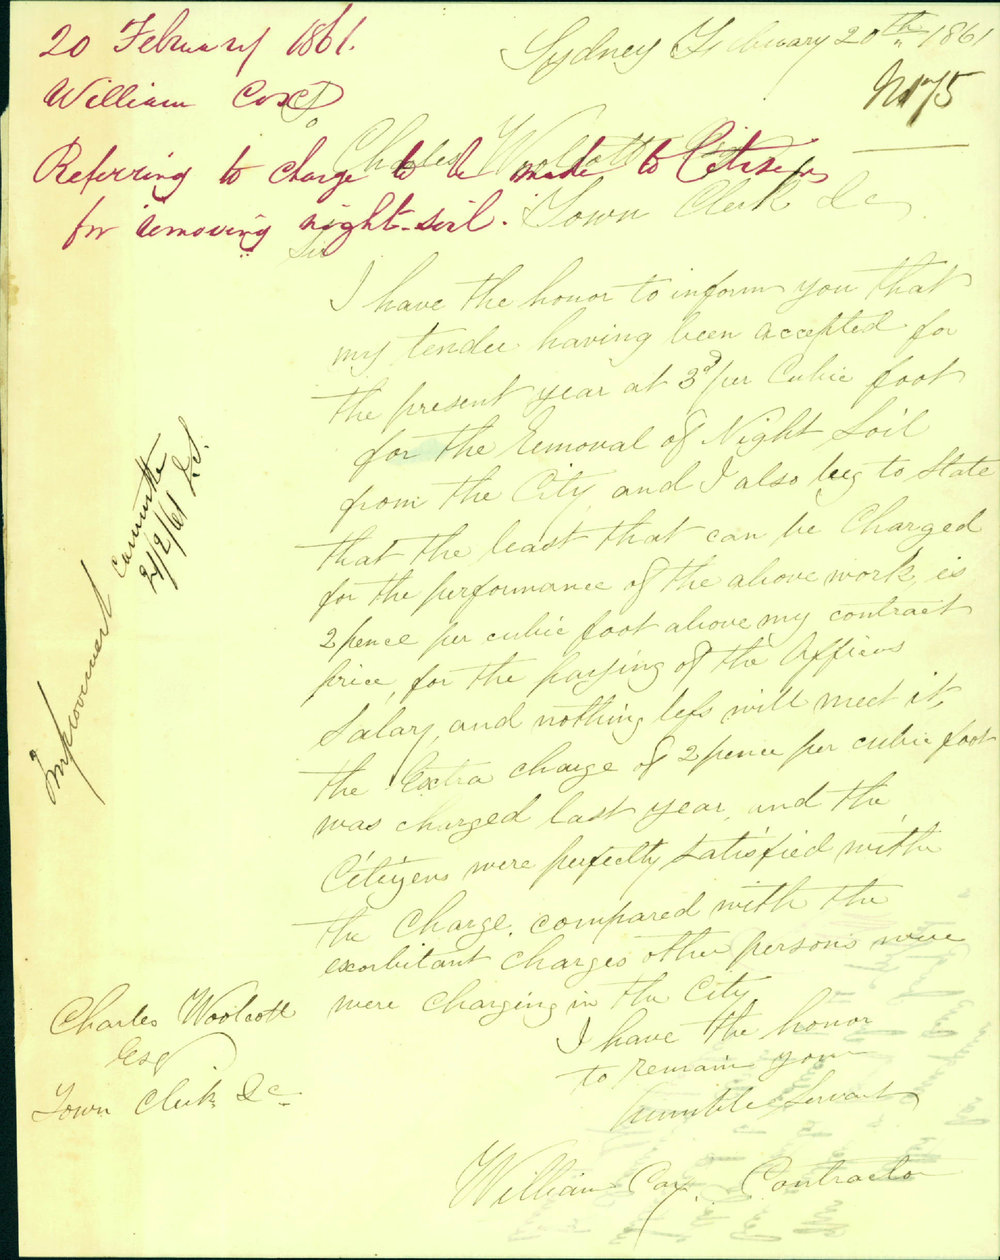 20 February 1861.
William Cox
Referring to charge to be made to Citizens
for removing night-soil.
Sydney February 20th 1861
No 175
Charles Woolcott Esq
Town Clerk &c
Sir
I have the honor to inform you that
my tender having been accepted for
the present year at 3d per Cubic foot
for the Removal of Night Soil
from the City and I also beg to State
that the least that can be Charged
for the performance of the above work, is
2 pence per cubic foot above my contract
price, for the paying of the Officers
Salary, and nothing less will meet it,
the Extra charge of 2 pence per cubic foot
was charged last year, and the
Citizens were perfectly satisfied with
the Charge, compared with the
exorbitant charges other persons were
were charging in the City
I have the honor
to remain your
humble Servant
William Cox. Contractor
Charles Woolcott
Esq
Town Clerk &c
Improvement Committee
21/2/61